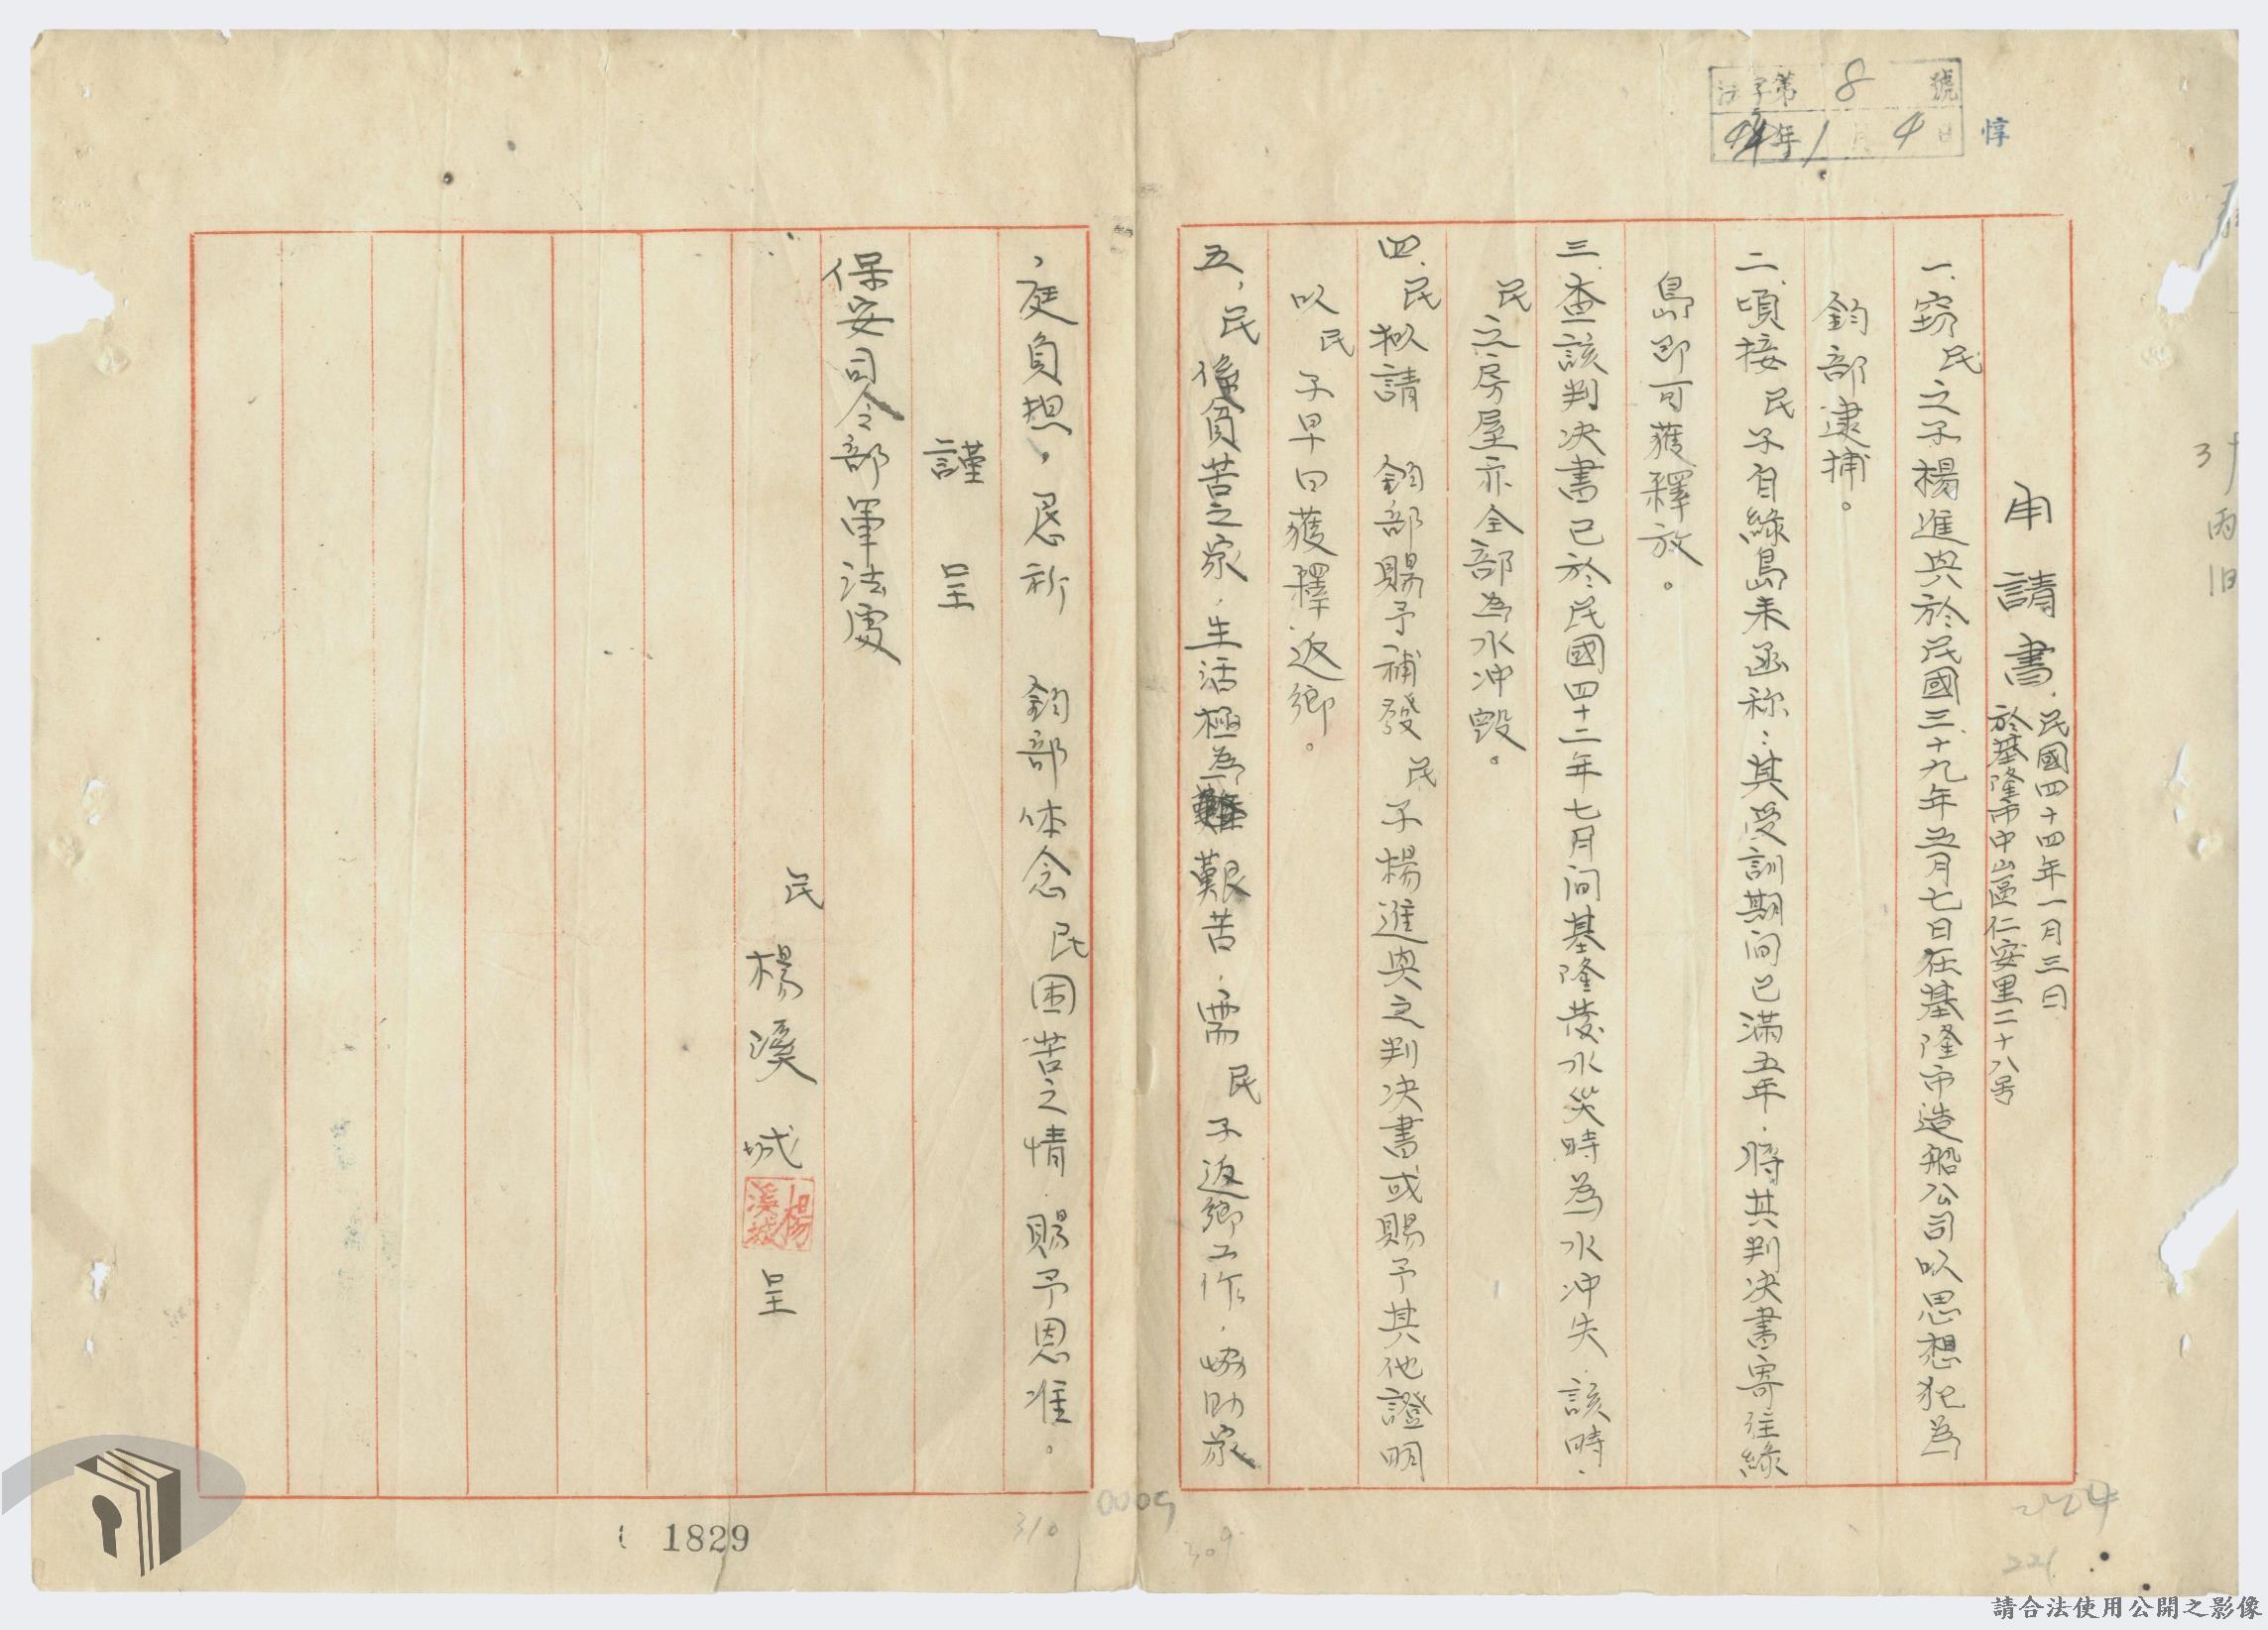 法字第8號
44年1月4日
惇
申請書
民國四十四年一月三日
於基隆市中山區仁安里二十八号
一、竊民之子楊進興於民國三十九年五月七日在基隆市造船公司以思想犯為
鈞部逮捕。
二、頃接民子自綠島来函称：其受訓期间已滿五年，將其判决書寄往綠
島即可獲釋放。
三、查該判决書已於民國四十二年七月间基隆發水災時為水冲失，該時，
民之房屋亦全部為水冲毀。
四、民拟請　鈞部賜予補發民子楊進興之判决書或賜予其他證明
以民子早日獲釋返鄉。
五、民僅負苦之家，生活極為艱苦，需民子返鄉工作，協助家
庭負担，恳祈　鈞部体念民困苦之情，賜予恩准。
謹　呈
保安司令部軍法處
民　楊溪城　呈
楊溪城
1829
0009
310
309
224
221
請合法使用公開之影像